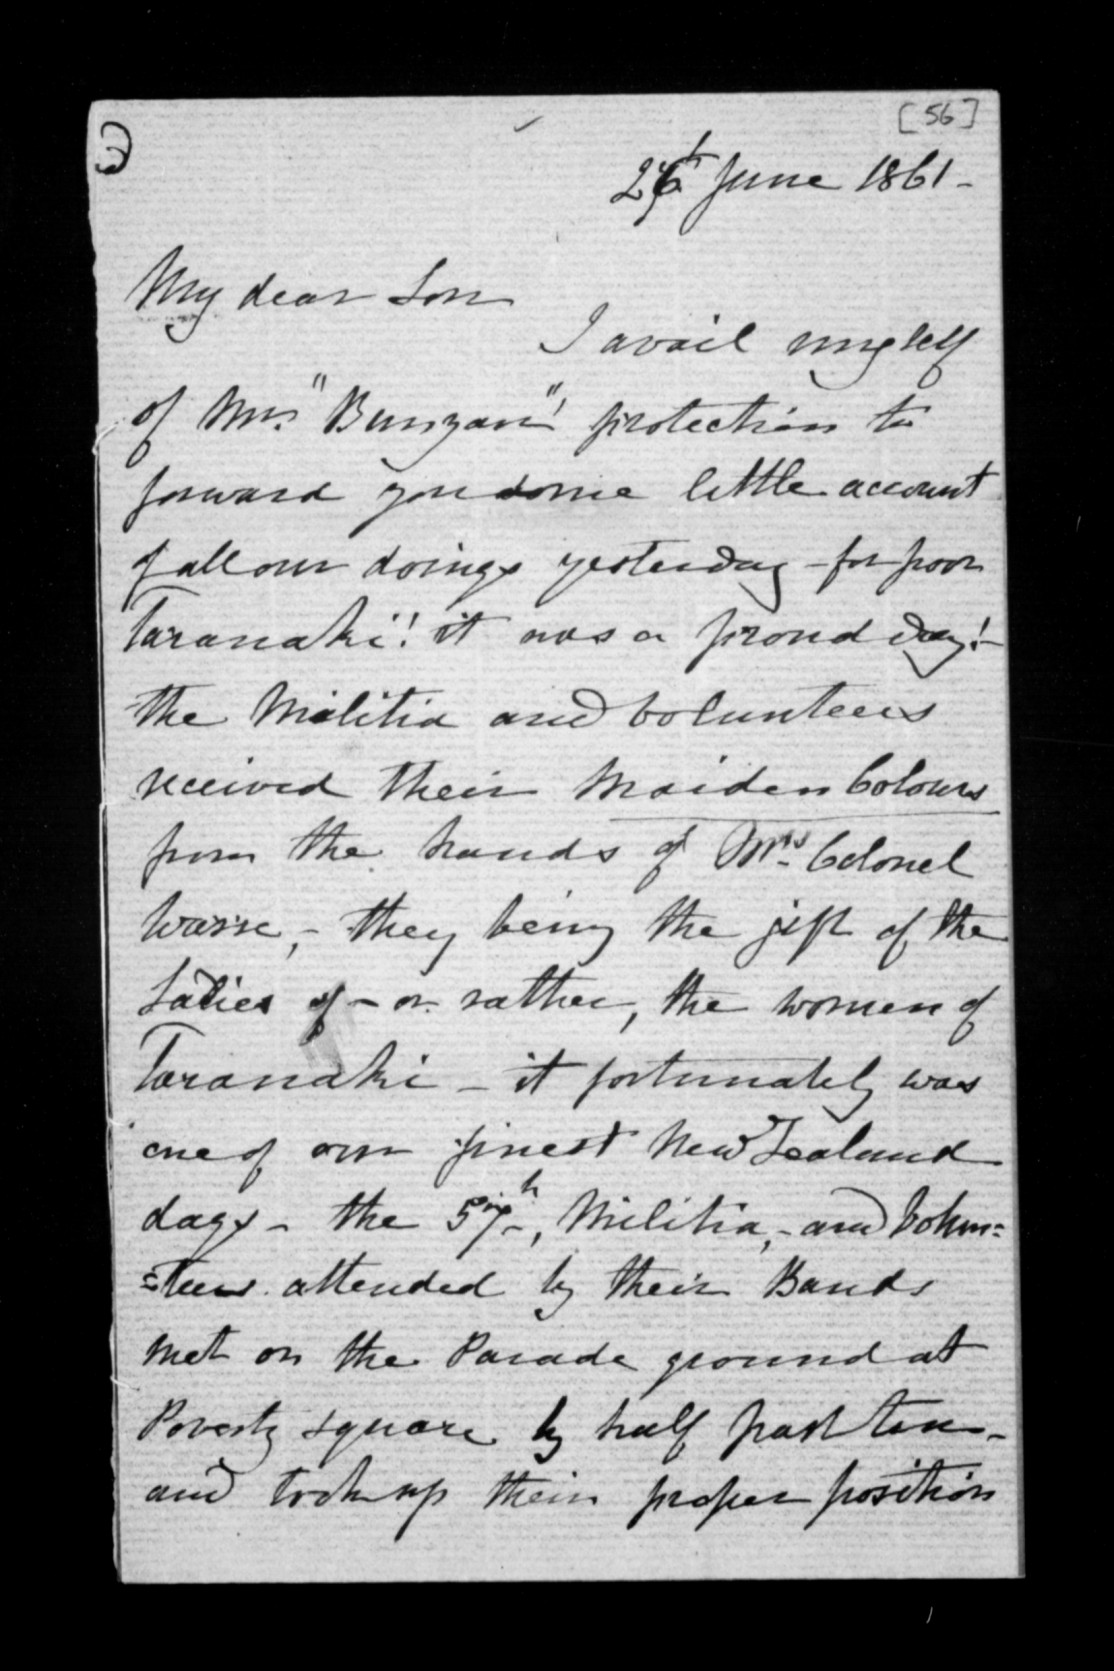 [56]
26th June 1861 -
My dear Son
I avail myself
of Mrs. "Bunyan"! protection to
forward you some little account
of all our doings yesterday - for poor
Taranaki! it was a proud day! -
the Militia and Volunteers
received their Maiden Colours
from the hands of Mrs. Colonel
Warre, - they being the gift of the
Ladies of - or rather, the women of
Taranaki - it fortunately was
one of our finest New Zealand
days - the 57th, Militia, - and Volun=
=teers attended by their Bands
met on the Parade ground at
Poverty square by half past ten -
and took up their proper position